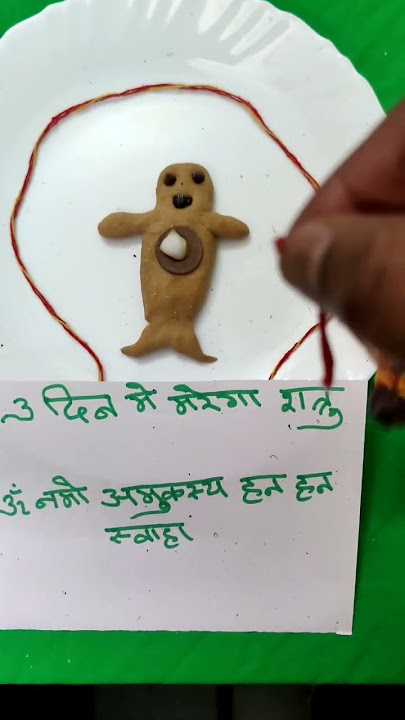 3 दिन मे मरेगा शत्रु
ॐ नमो अमुकस्य हन हन
स्वाहा